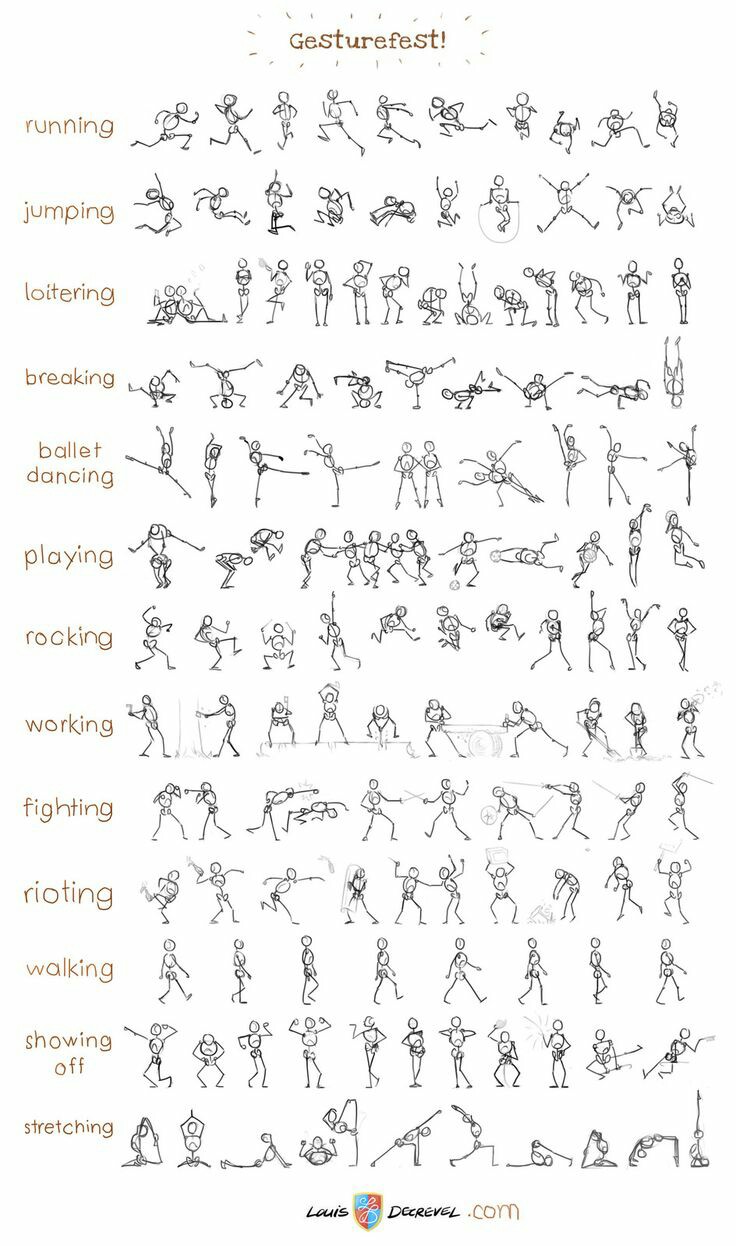 Gesturefest!
running
jumping
loitering
breaking
ballet
dancing
playing
rocking
working
fighting
rioting
walking
showing
off
stretching
Louis Decrevel .com